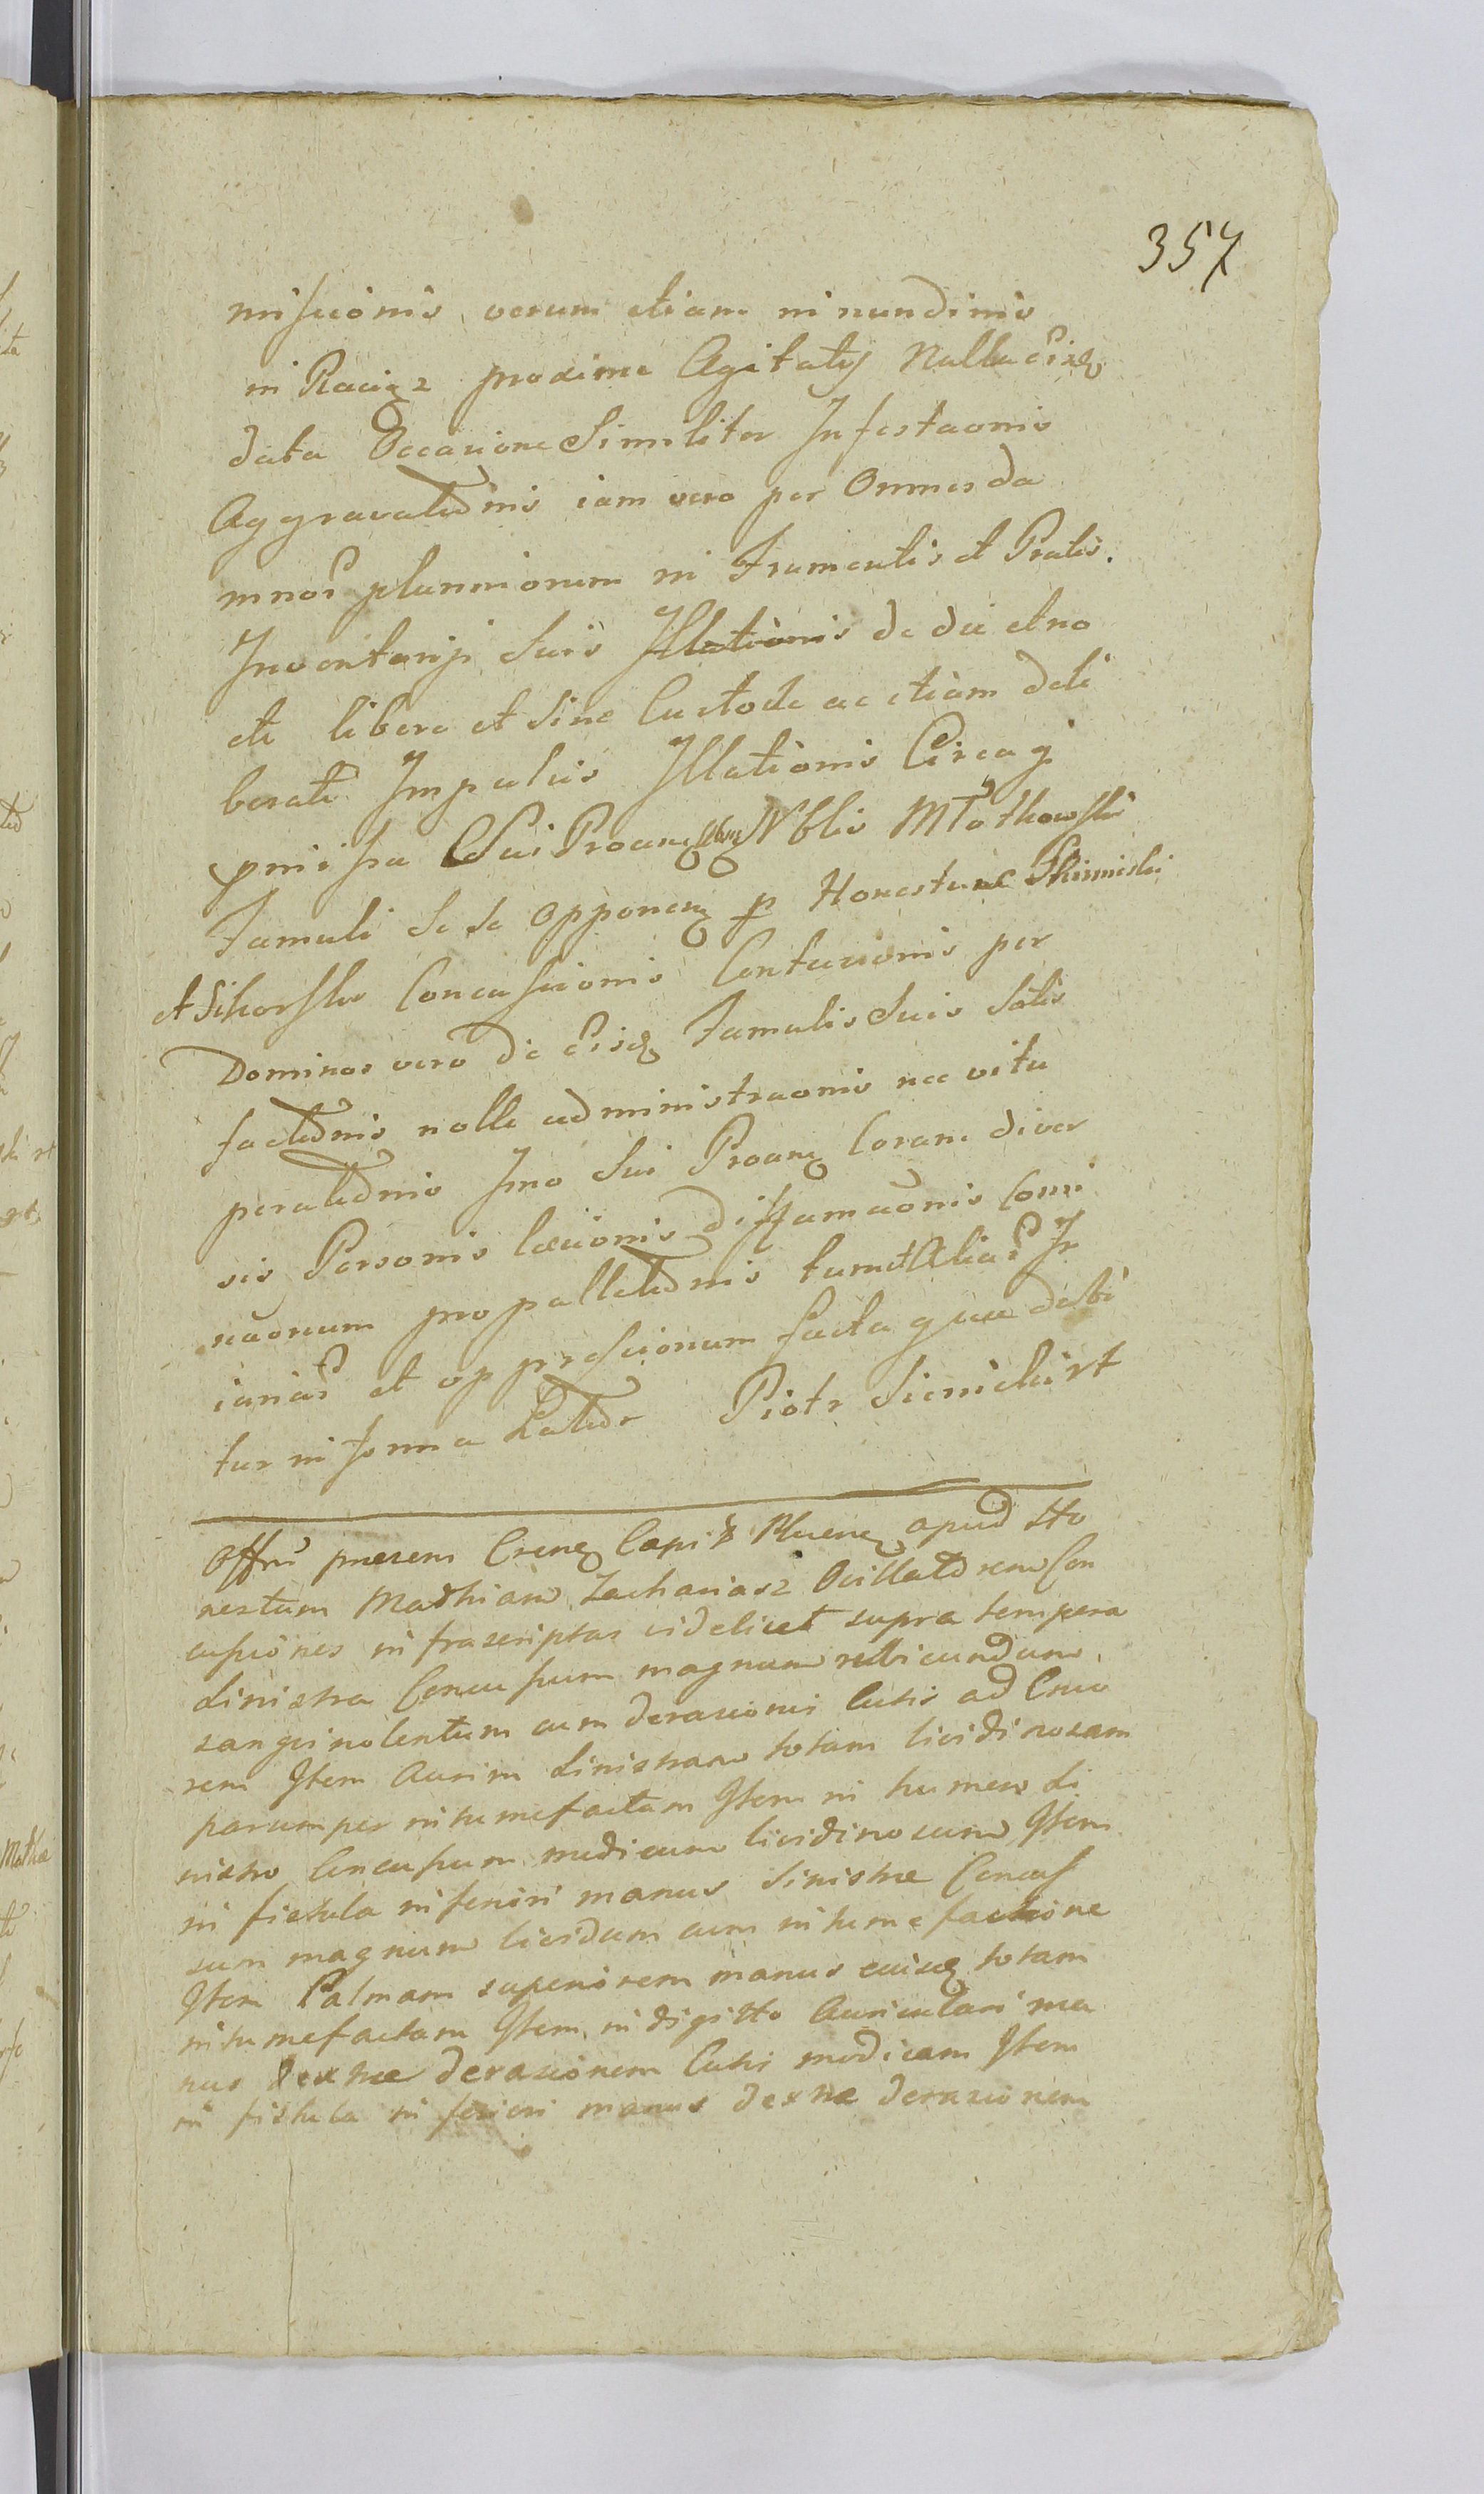 357
missionis verum etiam in nundinis
in Raciąz proxime Agitatis Nulla eisq
data Occasione Similiter Infestaonis
Aggravatnis iam vero per Omnes da
mnor plurimorum in Frumentis et Pratis.
Inventarijs suis Illationis de die et no
cte libere et sine Custode ac etiam deli
berate Impulsis Illationis Circa q
pmissa Sui Proan Nblis Młotkowski
Famuli se se opponen p Honestum Skinieski
et Sikorski Concussionis Contusionis per
Dominos vero de eisq Famulis suis satis
factnis nolle administraonis nec vitu
peratnis Imo sui Proan Coram diver
sis Personis læsionis diffamaonis Comi
naonum propallatnis tum et Aliar In
iuriar et oppressionum facta quæ dedu
tur in forma Latur Piotr Sienicki rt
Offm præsens Crene Capit Plucne apud Ho
nestum Mathiam Zachariasz Oscillatorem Con
cussiones infrascriptas videlicet supra tempera
sinistra Concussum magnum rubicundum
sanguinolentum cum derasionis Cutis ad Cruo
rem Item Aurim sinistram totam lividinosam
parumper intumefactam Item in humero si
nistro Concussum medicum lividinosum Item
in fistula inferiri manus sinistræ Concus
sum magnum lividum cum intumefactione
Item Palmam superiorem manus euisq totam
intumefactam Item in digitto Auriculari ma
nus dextræ derasionem Cutis modicam Item
in fistula inferiori manus dextræ derasionem